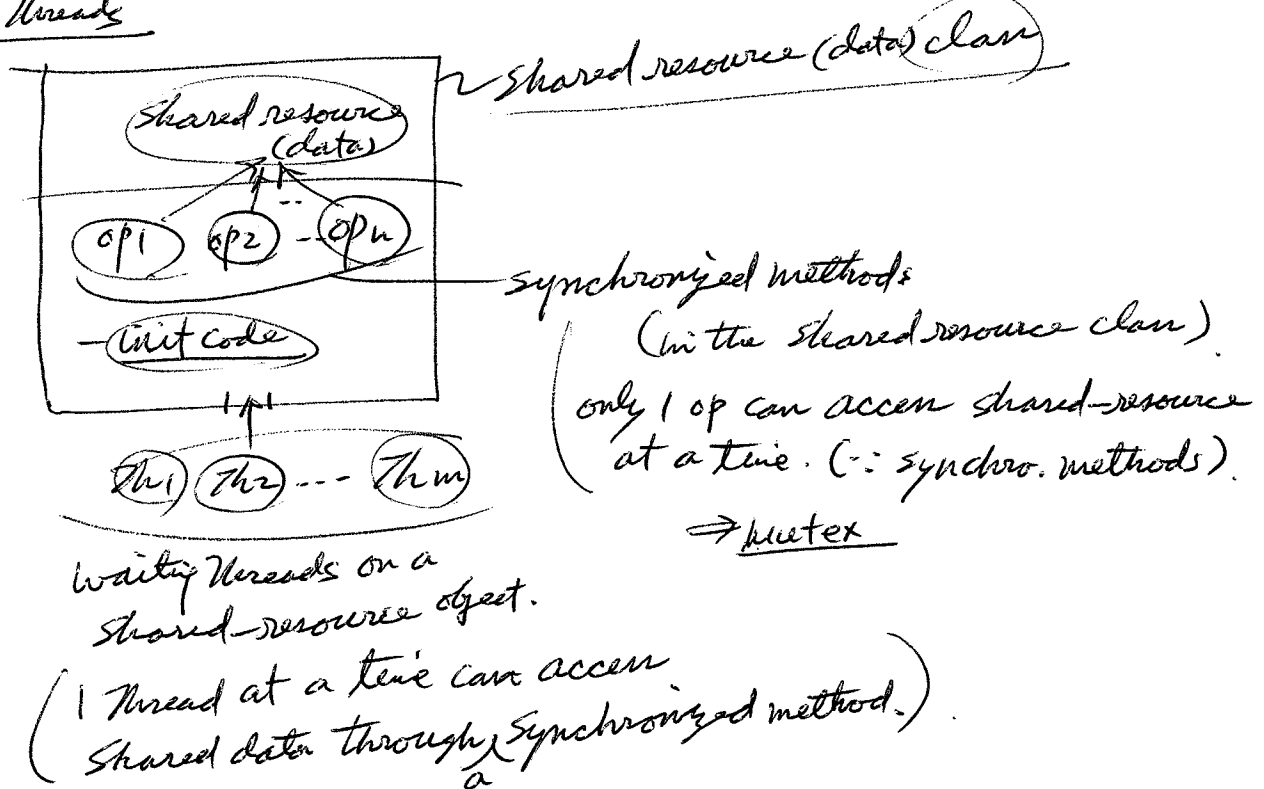 Threads
shared resource (data) class
shared resource
(data)
..
op1 op2 --- opn
synchronized methods
(in the shared resource class).
- init code
only 1 op can access shared-resource
at a time. (∵ synchro. methods).
⇒ mutex
Th1 Th2 ---- Thm
waiting Threads on a
shared-resource object.
(1 Thread at a time can access
shared data through a synchronized method.).